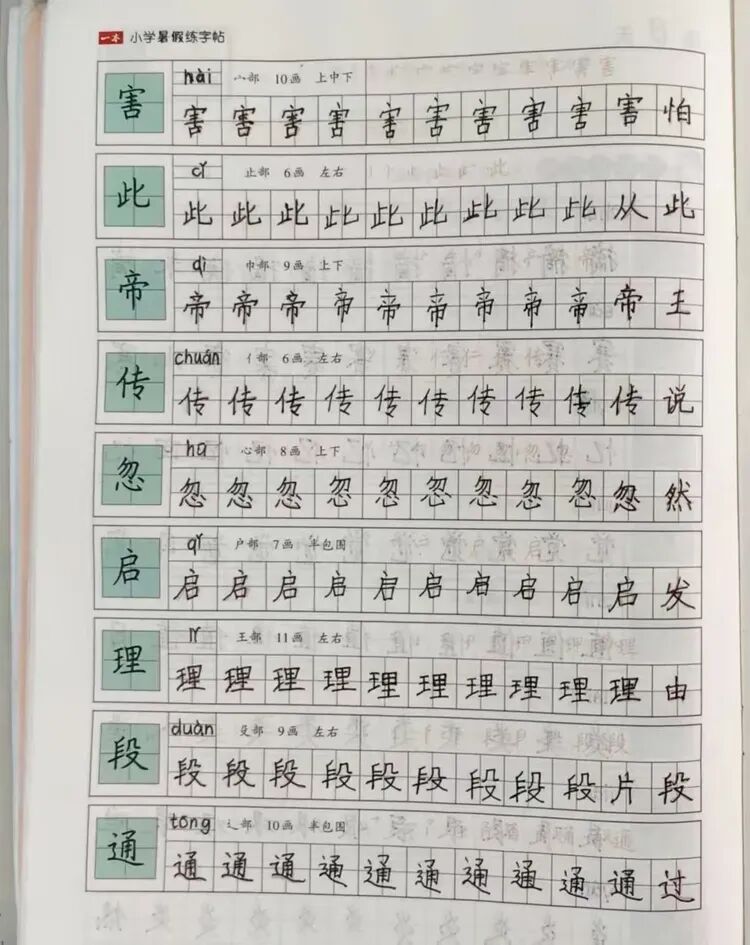 一本 小学暑假练字帖
hài 宀部 10画 上中下
害 害 害 害 害 害 害 害 害 害 害 怕
cǐ 止部 6画 左右
此 此 此 此 此 此 此 此 此 此 从 此
dì 巾部 9画 上下
帝 帝 帝 帝 帝 帝 帝 帝 帝 帝 帝 王
chuán 亻部 6画 左右
传 传 传 传 传 传 传 传 传 传 传 说
hū 心部 8画 上下
忽 忽 忽 忽 忽 忽 忽 忽 忽 忽 忽 然
qǐ 户部 7画 半包围
启 启 启 启 启 启 启 启 启 启 启 发
lǐ 王部 11画 左右
理 理 理 理 理 理 理 理 理 理 理 由
duàn 殳部 9画 左右
段 段 段 段 段 段 段 段 段 段 片 段
tōng 辶部 10画 半包围
通 通 通 通 通 通 通 通 通 通 通 过